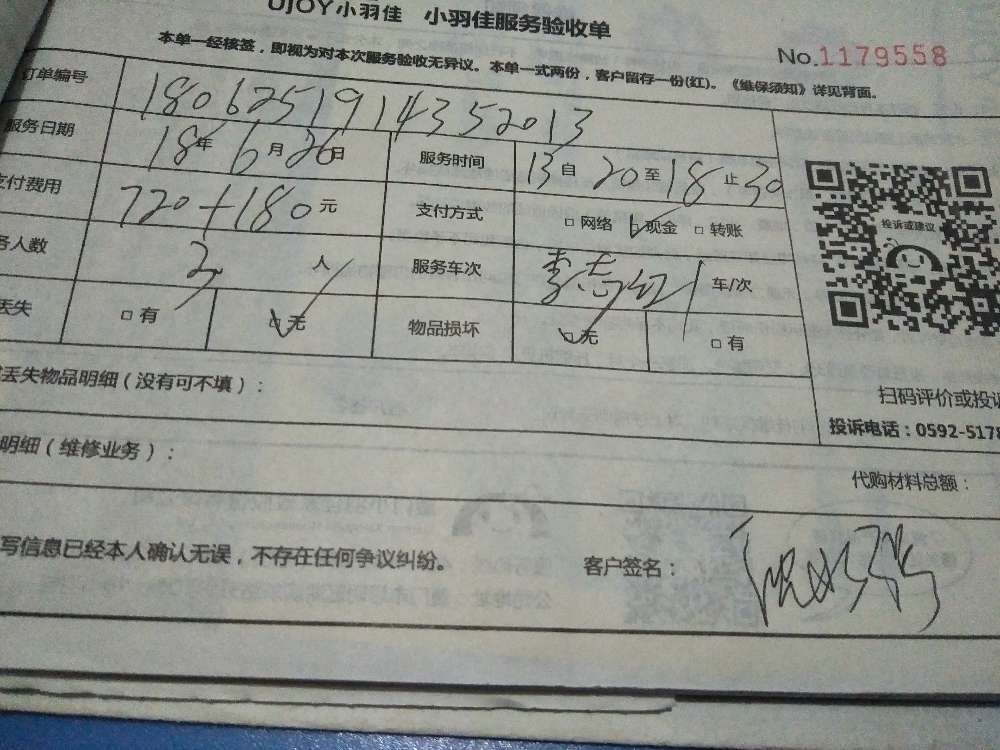 UJOY小羽佳 小羽佳服务验收单
No.1179558
本单一经核签，即视为对本次服务验收无异议。本单一式两份，客户留存一份(红)。《维保须知》详见背面。
订单编号 180625191435​2013
服务日期 18年6月26日 服务时间 13自20至18止30
支付费用 720+180元 支付方式 □网络 □现金 □转账
务人数 3人 服务车次 李志红1车/次
丢失 □有 □无 物品损坏 □无 □有
投诉或建议
丢失物品明细（没有可不填）：
扫码评价或投诉
投诉电话：0592-5178
明细（维修业务）：
代购材料总额：
写信息已经本人确认无误，不存在任何争议纠纷。
客户签名：